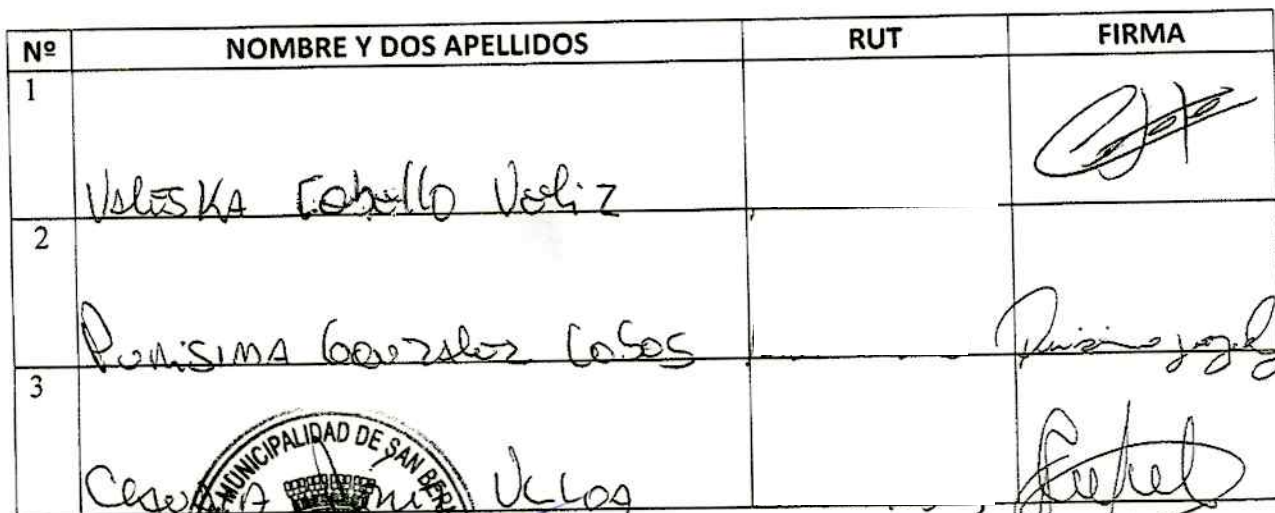 Nº NOMBRE Y DOS APELLIDOS RUT FIRMA
1
Valeska Cabello Veliz
2
Purisima Gonzalez Cobos
3
MUNICIPALIDAD DE SAN BER